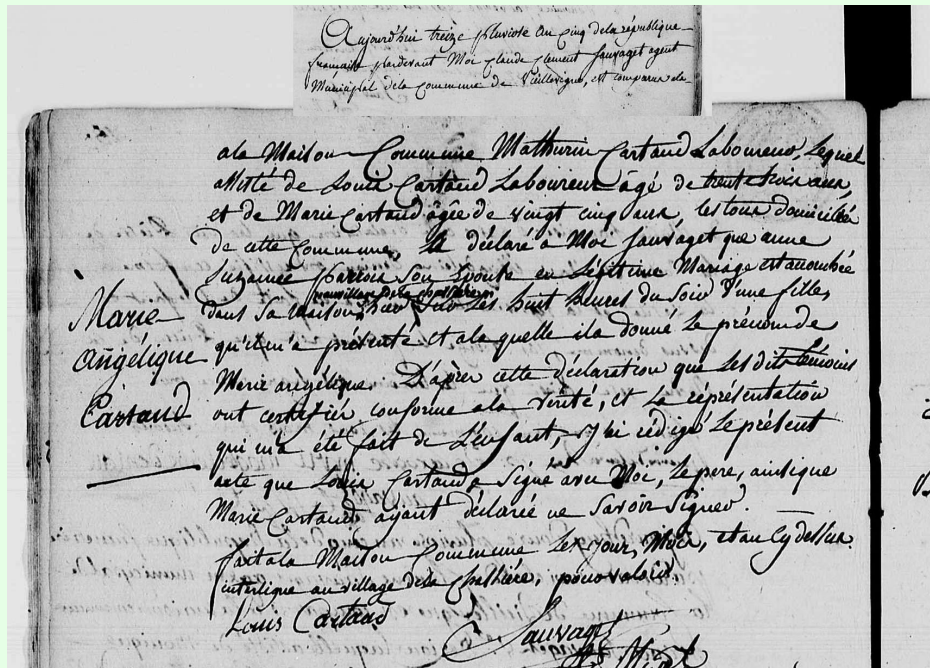 Aujourd'hui treize pluviose an cinq de la république
française pardevant Moi Claude Clement Sauvaget agent
Municipal de la Commune de Vieillevigne, est comparu de
a la Maison Commune Mathurin Cartaud Laboureur, Lequel
assisté de Louis Cartaud Laboureur âgé de trente trois ans,
et de Marie Cartaud âgée de vingt cinq ans, les tous domiciliés
de cette Commune, a déclaré a Moi Sauvaget que anne
Suzanne Parois Son Epouse en Légitime Mariage est accouchée
au village de la chassiere
dans Sa Maison hier Sur Les huit heures du Soir d'une fille,
qu'il m'a présenté et a laquelle il a donné Le prénom de
Marie angélique. D'après cette déclaration que Les dits témoins
ont certifier conforme a la verité, et La représentation
qui m'a été fait de L'enfant, j'ai rédigé Le présent
acte que Louis Cartaud a Signé avec Moi, Le pere, ainsi que
Marie Cartaud ayant déclarée ne Savoir Signer.
fait a la Maison Commune Les jour, Mois, et an cy dessus.
interligne au village de la Chassière, pour valoir.
Louis Cartaud
Sauvaget
Marie
angélique
Cartaud